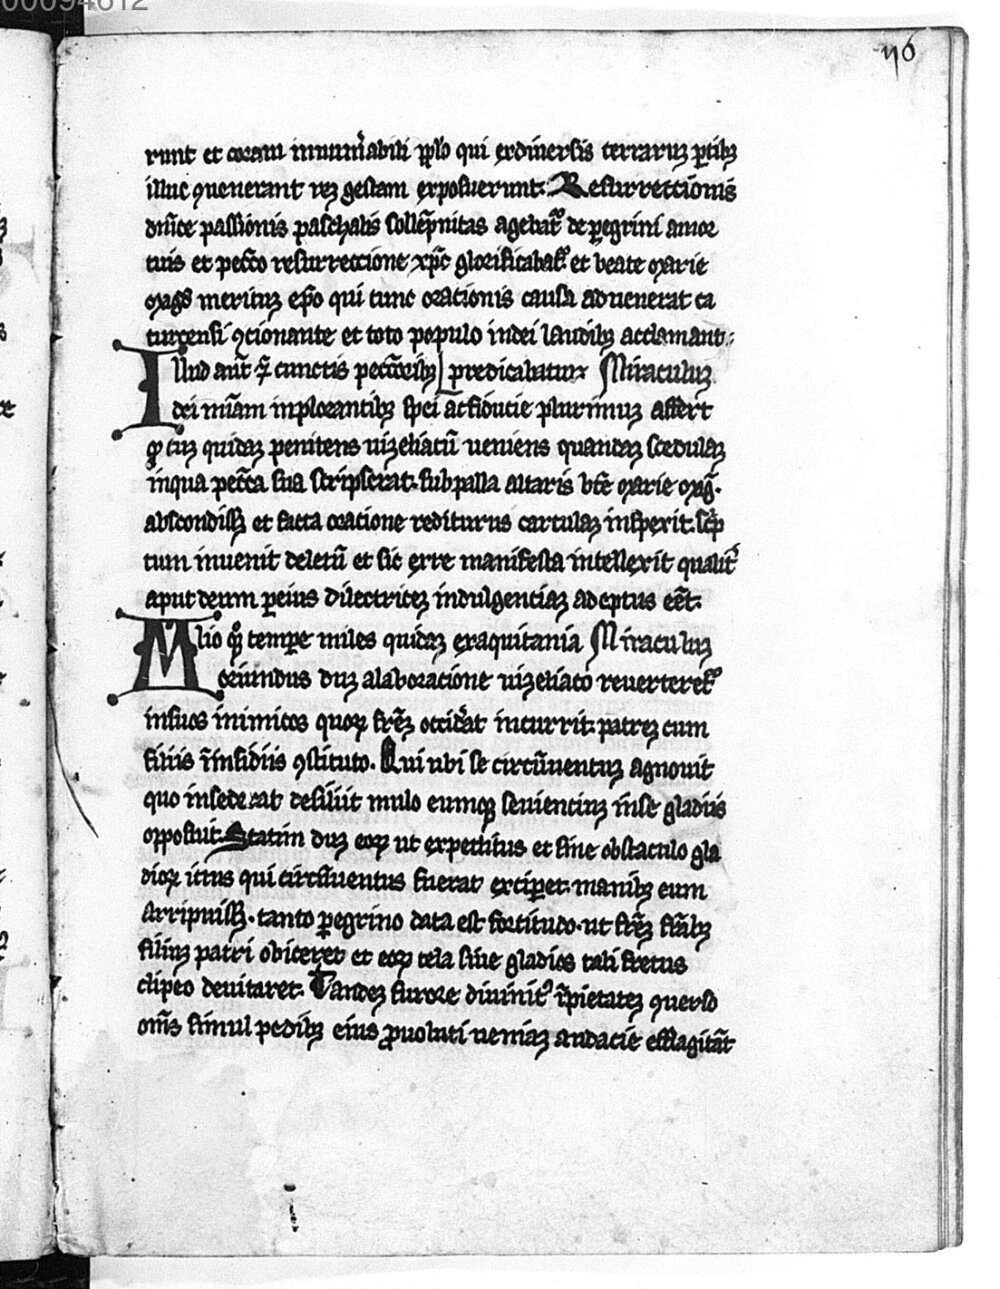 00094612
116
runt et coram innumãbili pplo qui exdiuersis terraruꝫ ptibꝫ
illuc ꝯuenerant reꝫ gestam exposuerunt: Resurrectionis
dnĩce passionis paschalis sollẽpnitas agebat᷑ de peregrini amor
tuis et pecc̃o resurreccione xp̃c glorificabat᷑ et beate marie
mag̃ meritiuꝫ ep̃o qui tunc orationis causa aduenerat ca
turcensi ꝯcionante et toto populo indei laudibꝫ acclamant.
Illud aut̃ ꝙ cunctis pecc̃oribꝫ predicabatur Miraculuꝫ
dei mĩam inplorantibꝫ spei ac fiducie plurimuꝫ affert
quidaꝫ penitens uizeliacũ ueniens quandaꝫ scedulaꝫ
inqua pecc̃a sua scripserat. subpalla altaris bt̃e marie mag̃.
abscondiss̃ et facta oratione rediturus cartulaꝫ inspexit. sc̃p
tum inuenit deletũ et sic erre manifesta intellexit qualit᷑
aput deum peius dilectriceꝫ indulgenciaꝫ adeptus eet̃.
Alio qꝫ tempe miles quidaꝫ exaquitania Miraculuꝫ
oriundus duꝫ alaboracione uizeliaco reuerteret᷑
insuos inimicos quoꝝ frẽꝫ occidãt incurrit. patreꝫ cum
filiis ĩinsidiis ꝯstituto. Qui ubi se circũuentuꝫ agnouit
quo insederat desiliit mulo eumqꝫ seuienciuꝫ inse gladiis
opposuit. Statim duꝫ eoꝝ ut expeditus et sine obstaculo gla
dioꝝ ictus qui circũuentus fuerat exciperet. manibꝫ eum
arripuiss̃. tanto peregrino data est fortitudo. ut frẽꝫ frãibꝫ
filiuꝫ patri obiceret et eoꝝ tela siue gladios tali fretus
clipeo deuitaret. Tandeꝫ furore diuinit᷑ ĩpietateꝫ ꝯuerso
om̃s simul pedibꝫ eius ꝓuoluti ueniaꝫ audacie efflagitãt